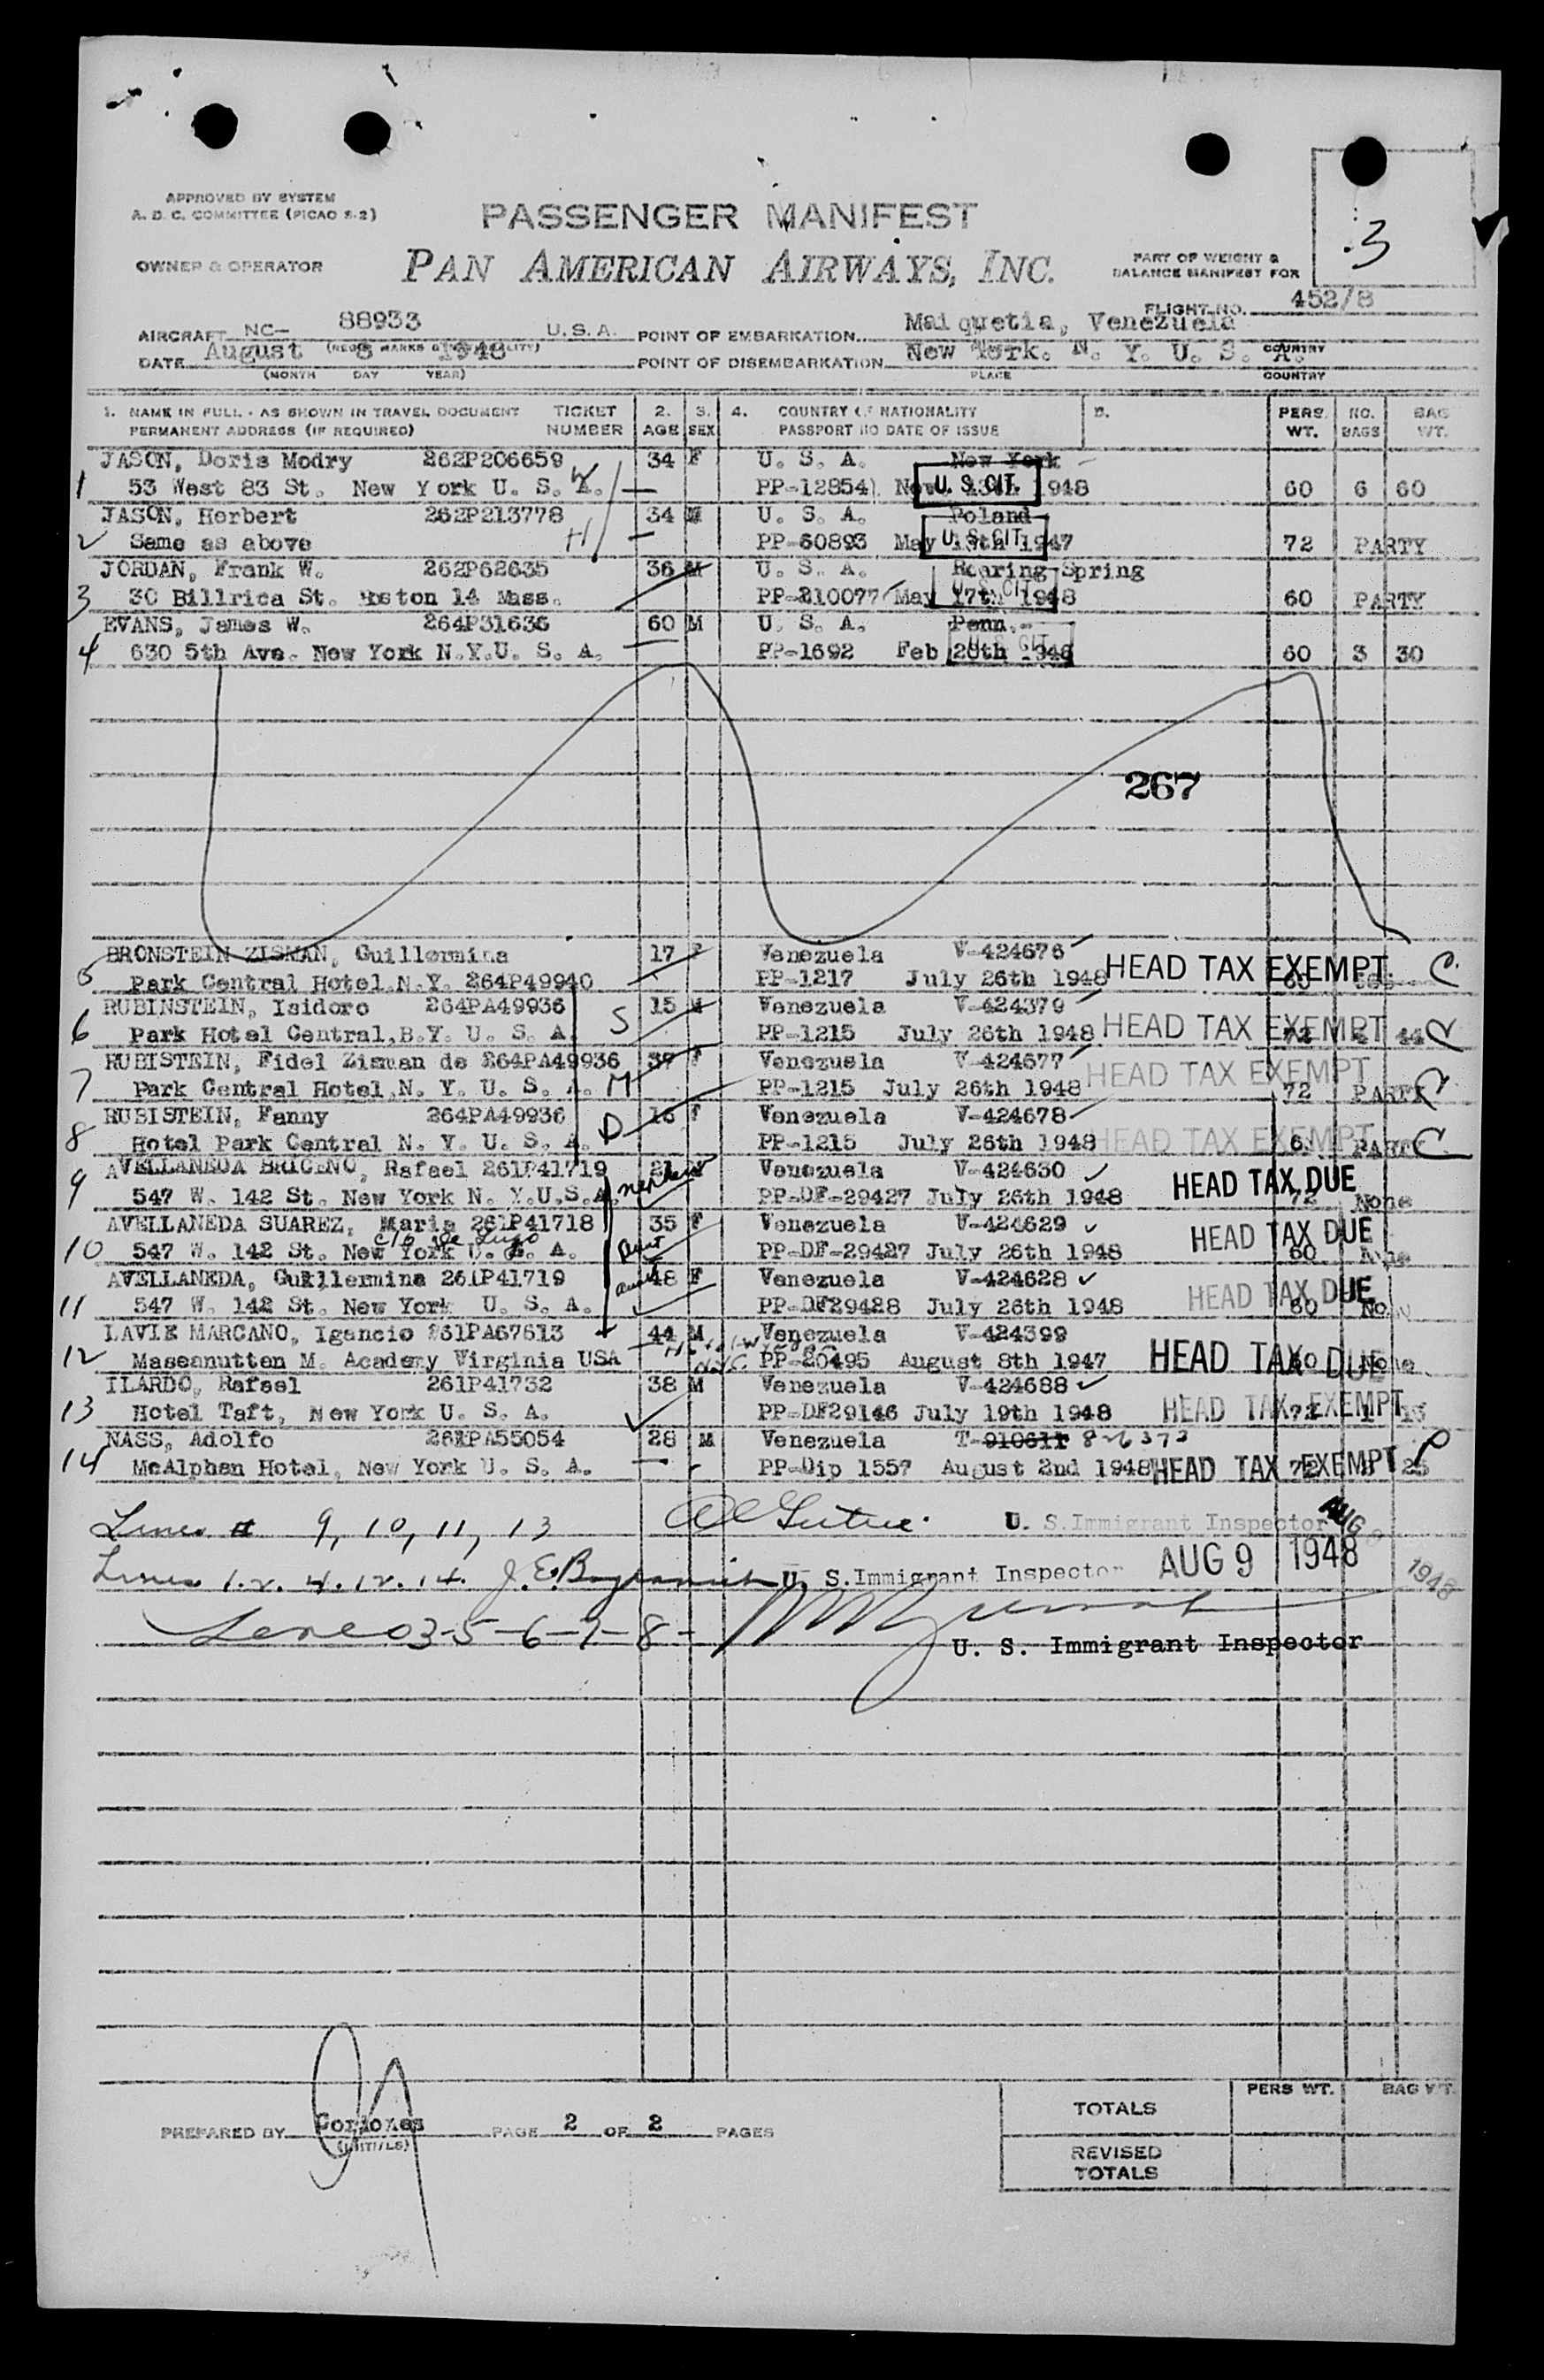 APPROVED BY SYSTEM
A. D. C. COMMITTEE (PICAO S-2)
PASSENGER MANIFEST
.3
OWNER & OPERATOR
PAN AMERICAN AIRWAYS, INC.
PART OF WEIGHT &
BALANCE MANIFEST FOR
FLIGHT NO. 452/8
AIRCRAFT NC- 88933 U.S.A. POINT OF EMBARKATION Maiquetia, Venezuela
DATE August 8 1948 POINT OF DISEMBARKATION New York. N. Y. U. S. A.
(MONTH DAY YEAR) PLACE COUNTRY
1. NAME IN FULL - AS SHOWN IN TRAVEL DOCUMENT TICKET 2. 3. 4. COUNTRY OF NATIONALITY PERS. NO. BAG
PERMANENT ADDRESS (IF REQUIRED) NUMBER AGE SEX PASSPORT NO DATE OF ISSUE WT. BAGS WT.
JASON, Doris Modry 262P206659 34 F U. S. A. New York
1 53 West 83 St. New York U. S. A. W PP-12854 U. S. CIT. 1948 60 6 60
JASON, Herbert 262P213778 34 M U. S. A. Poland
2 Same as above H PP-60893 May U. S. CIT. 1947 72 PARTY
JORDAN, Frank W. 262P62635 36 M U. S. A. Roaring Spring
3 30 Billrica St. Boston 14 Mass. PP-210077 May 17th 1948 U. S. CIT. 60 PARTY
EVANS, James W. 264P31636 60 M U. S. A. Penn.
4 630 5th Ave. New York N.Y.U. S. A. PP-1692 Feb U. S. CIT. 60 3 30
267
BRONSTEIN ZISMAN, Guillermina 17 F Venezuela V-424676
5 Park Central Hotel.N.Y. 264P49940 PP-1217 July 26th 1948 HEAD TAX EXEMPT C
RUBINSTEIN, Isidoro 264PA49936 S 15 M Venezuela V-424379
6 Park Hotel Central,B.Y. U. S. A. PP-1215 July 26th 1948 HEAD TAX EXEMPT 72 44 C
RUBISTEIN, Fidel Zisman de 264PA49936 39 F Venezuela V-424677
7 Park Central Hotel,N. Y. U. S. A. M PP-1215 July 26th 1948 HEAD TAX EXEMPT 72 PARTY C
RUBISTEIN, Fanny 264PA49936 D 16 F Venezuela V-424678
8 Hotel Park Central N. Y. U. S. A. PP-1215 July 26th 1948 HEAD TAX EXEMPT PARTY C
AVELLANEDA BRICENO, Rafael 261P41719 21 Venezuela V-424630
9 547 W. 142 St. New York N. Y.U.S.A. nephew PP-DF-29427 July 26th 1948 HEAD TAX DUE 72 None
AVELLANEDA SUAREZ, Maria 261P41718 35 F Venezuela V-424629
10 547 W. 142 St. New York U. S. A. c/o de Lugo PP-DF-29427 July 26th 1948 HEAD TAX DUE 60 None
AVELLANEDA, Guillermina 261P41719 aunt 48 F Venezuela V-424628
11 547 W. 142 St. New York U. S. A. PP-DF29428 July 26th 1948 HEAD TAX DUE 60 No
LAVIE MARCANO, Igancio 261PA67613 44 M Venezuela V-424399
12 Massanutten M. Academy Virginia USA N.Y.C. PP-20495 August 8th 1947 HEAD TAX DUE None
ILARDO, Rafael 261P41732 38 M Venezuela V-424688
13 Hotel Taft, New York U. S. A. PP-DF29146 July 19th 1948 HEAD TAX EXEMPT 72
NASS, Adolfo 261PA55054 28 M Venezuela T-910611 8-6373
14 McAlphen Hotel, New York U. S. A. PP-Dip 1557 August 2nd 1948 HEAD TAX EXEMPT 72 25 P
Lines # 9, 10, 11, 13 U. S. Immigrant Inspector AUG 9 1948
Lines 1.2.4.12.14. U. S. Immigrant Inspector AUG 9 1948
Line 3-5-6-7-8-
U. S. Immigrant Inspector
PERS WT. BAG WT.
TOTALS
PREPARED BY (INITIALS) PAGE 2 OF 2 PAGES
REVISED
TOTALS